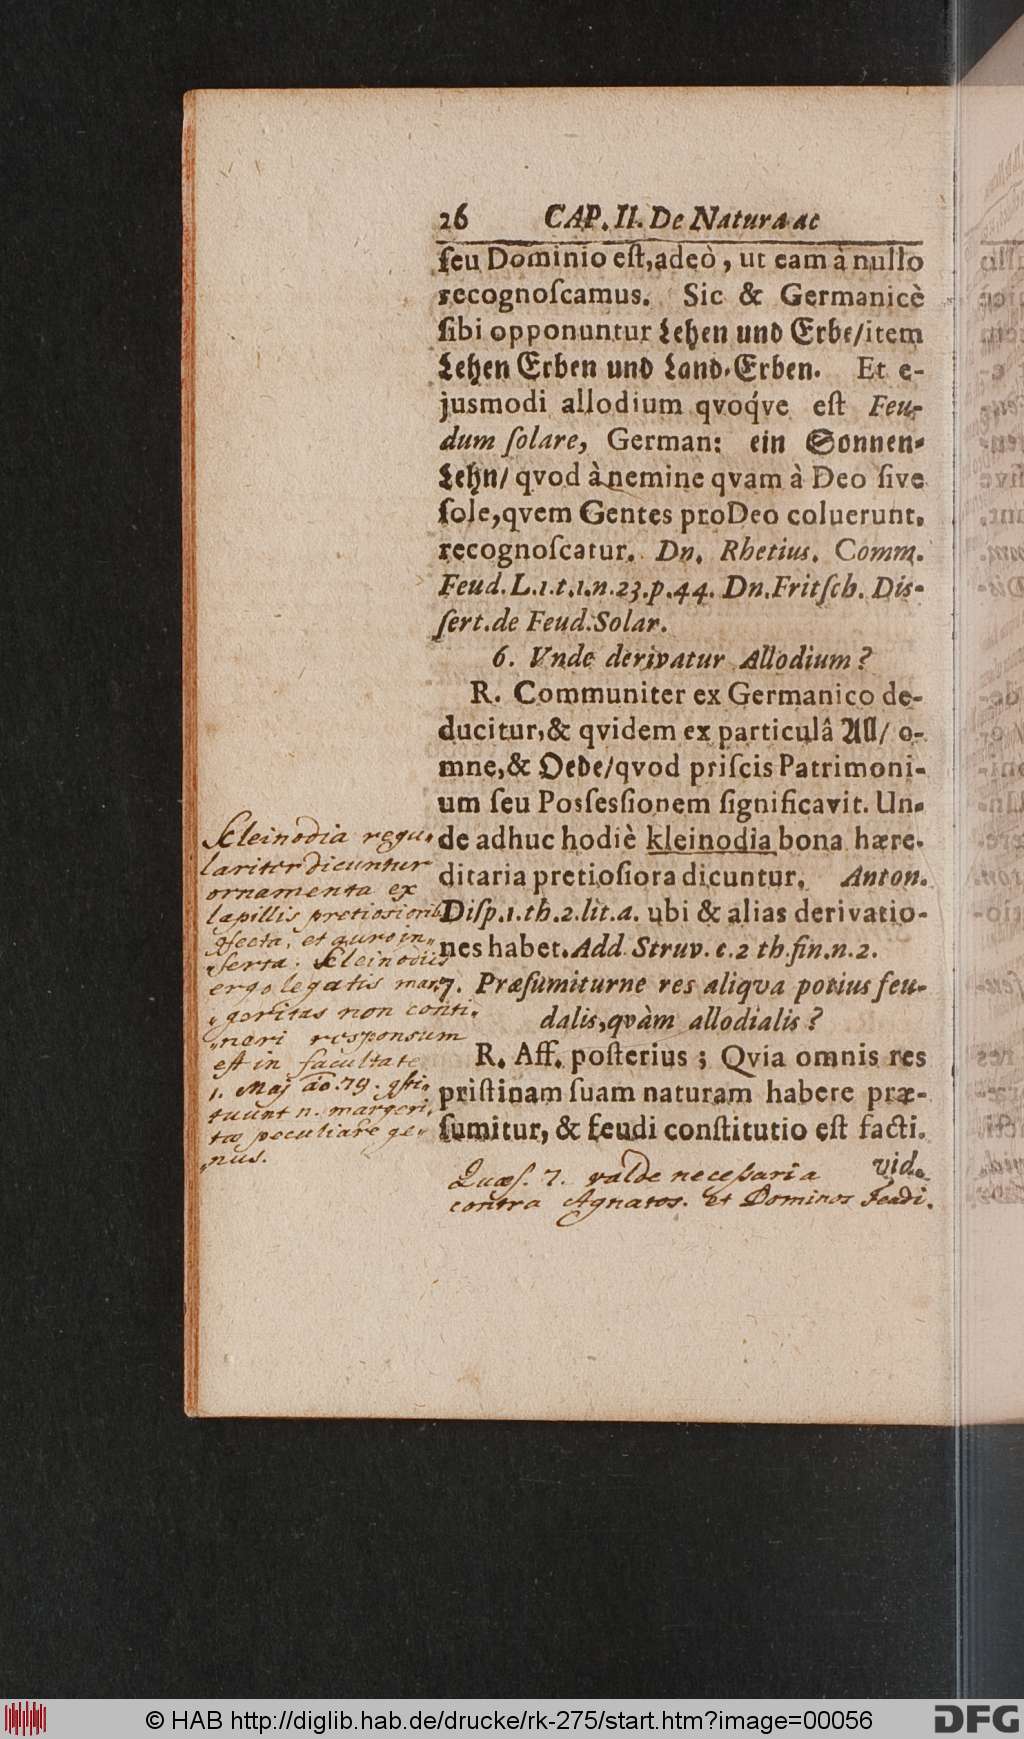 26 CAP. II. De Natura ac
ſeu Dominio eſt, adeò, ut eam à nullo
recognoſcamus. Sic & Germanicè
ſibi opponuntur Lehen und Erbe/ item
Lehen Erben und Land-Erben. Et e-
jusmodi allodium qvoq́ve eſt Feu-
dum ſolare, German: ein Sonnen-
Lehn/ qvod à nemine qvam à Deo ſive
ſole, qvem Gentes pro Deo coluerunt,
recognoſcatur. Dn. Rhetius. Comm.
Feud. L. 1. t. 1. n. 23. p. 44. Dn. Fritſch. Dis-
ſert. de Feud. Solar.
6. Vnde derivatur Allodium?
R. Communiter ex Germanico de-
ducitur, & qvidem ex particulâ All/ o-
mne, & Oede/ qvod priſcis Patrimoni-
um ſeu Posſesſionem ſignificavit. Un-
de adhuc hodiè kleinodia bona hære-
ditaria pretioſiora dicuntur. Anton.
Diſp. 1. th. 2. lit. a. ubi & alias derivatio-
nes habet. Add. Struv. c. 2 th. fin. n. 2.
7. Præſumiturne res aliqva potius feu-
dalis, qvàm allodialis?
R. Aff. poſterius; Qvia omnis res
priſtinam ſuam naturam habere præ-
ſumitur, & feudi conſtitutio eſt facti.
vid.
Kleinodia regu-
lariter dicuntur
ornamenta ex
lapillis pretiosiorib
et auro in-
serta. Kleinodiis
ergo legatis mar-
garitas non conti-
neri responsum
est in facultate
1. Maj ao. 79.
tuunt n. margari-
tæ peculiare ge-
nus.
Quæſ. 7. valde neceſsaria
contra Agnatos. et Dominos Feudi.
© HAB http://diglib.hab.de/drucke/rk-275/start.htm?image=00056
DFG